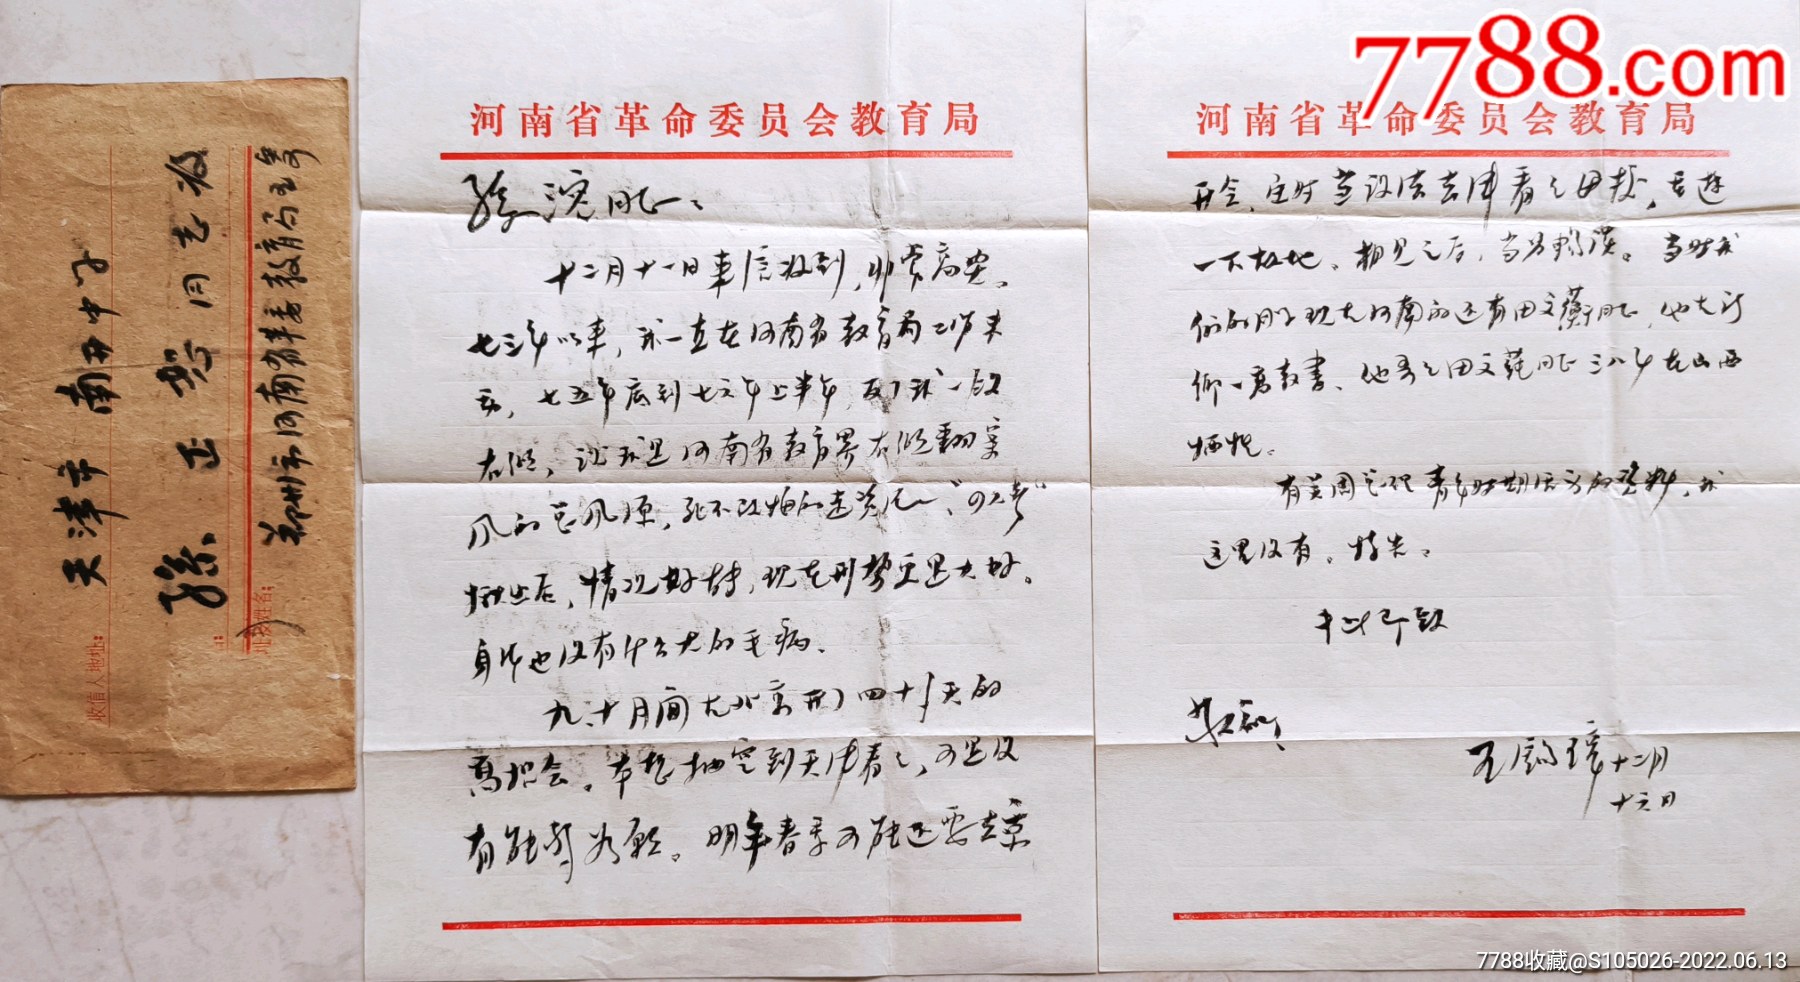 天津市 南开中学
孙正恕同志收
郑州市河南省革委教育局王寄
收信人地址:
姓名:
河南省革命委员会教育局
十二月十一日来信收到,非常高兴。
七三年以来,我一直在河南省教育局工作未
动,七五年底到七六年上半年,反了我一段
右倾,说我是河南省教育界右倾翻案
风的总风源,死不改悔的走资派,"四人帮"
揪出后,情况好转,现在形势更是大好。
身体也没有什么大的毛病。
九、十月间在北京开了四十多天的
高招会。本想抽空到天津看看,可是没
有能够如愿。明年春季可能还要去京
河南省革命委员会教育局
开会,定时当设法去津看看母校,去游
一下故地。相见之后,当另畅谈。当时我
们的同学现在河南的还有田文蘅同志,他在新
乡一高教书。他哥哥田文莼同志三八年在山西
牺牲。
有关周总理青年时期活动的资料,我
这里没有。特告。
专此即致
敬礼!
王 十二月
十六日
7788.com
7788收藏@S105026-2022.06.13